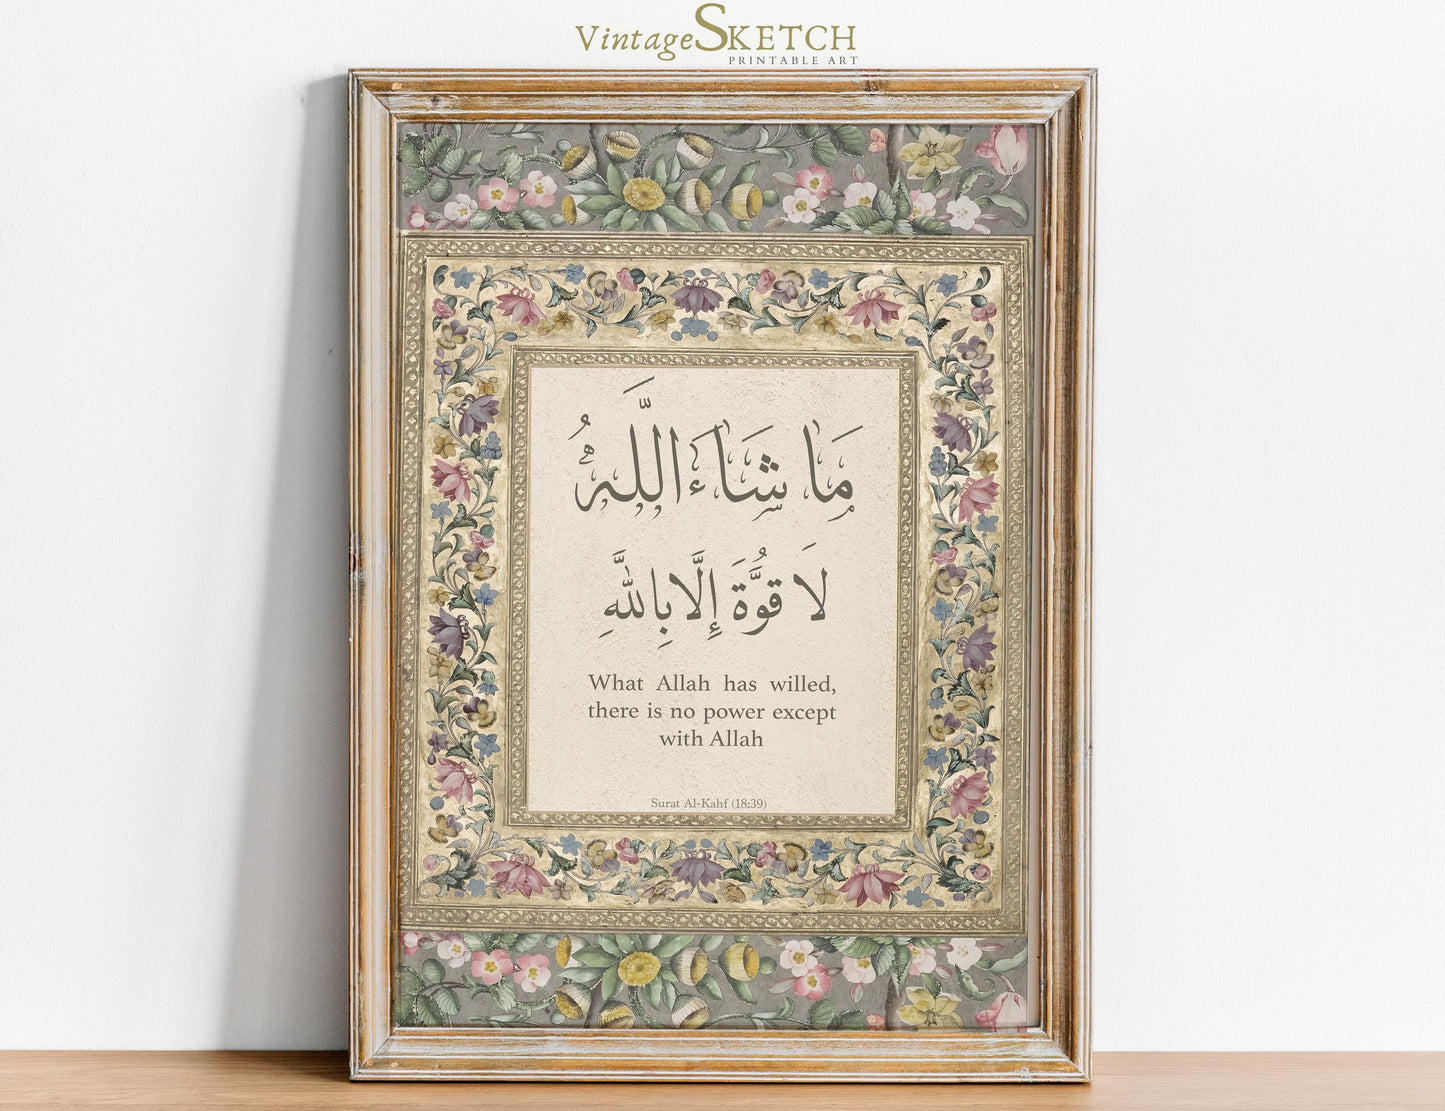 VintageSKETCH
PRINTABLE ART
مَا شَاءَ اللَّهُ
لَا قُوَّةَ إِلَّا بِاللَّهِ
What Allah has willed,
there is no power except
with Allah
Surat Al-Kahf (18:39)